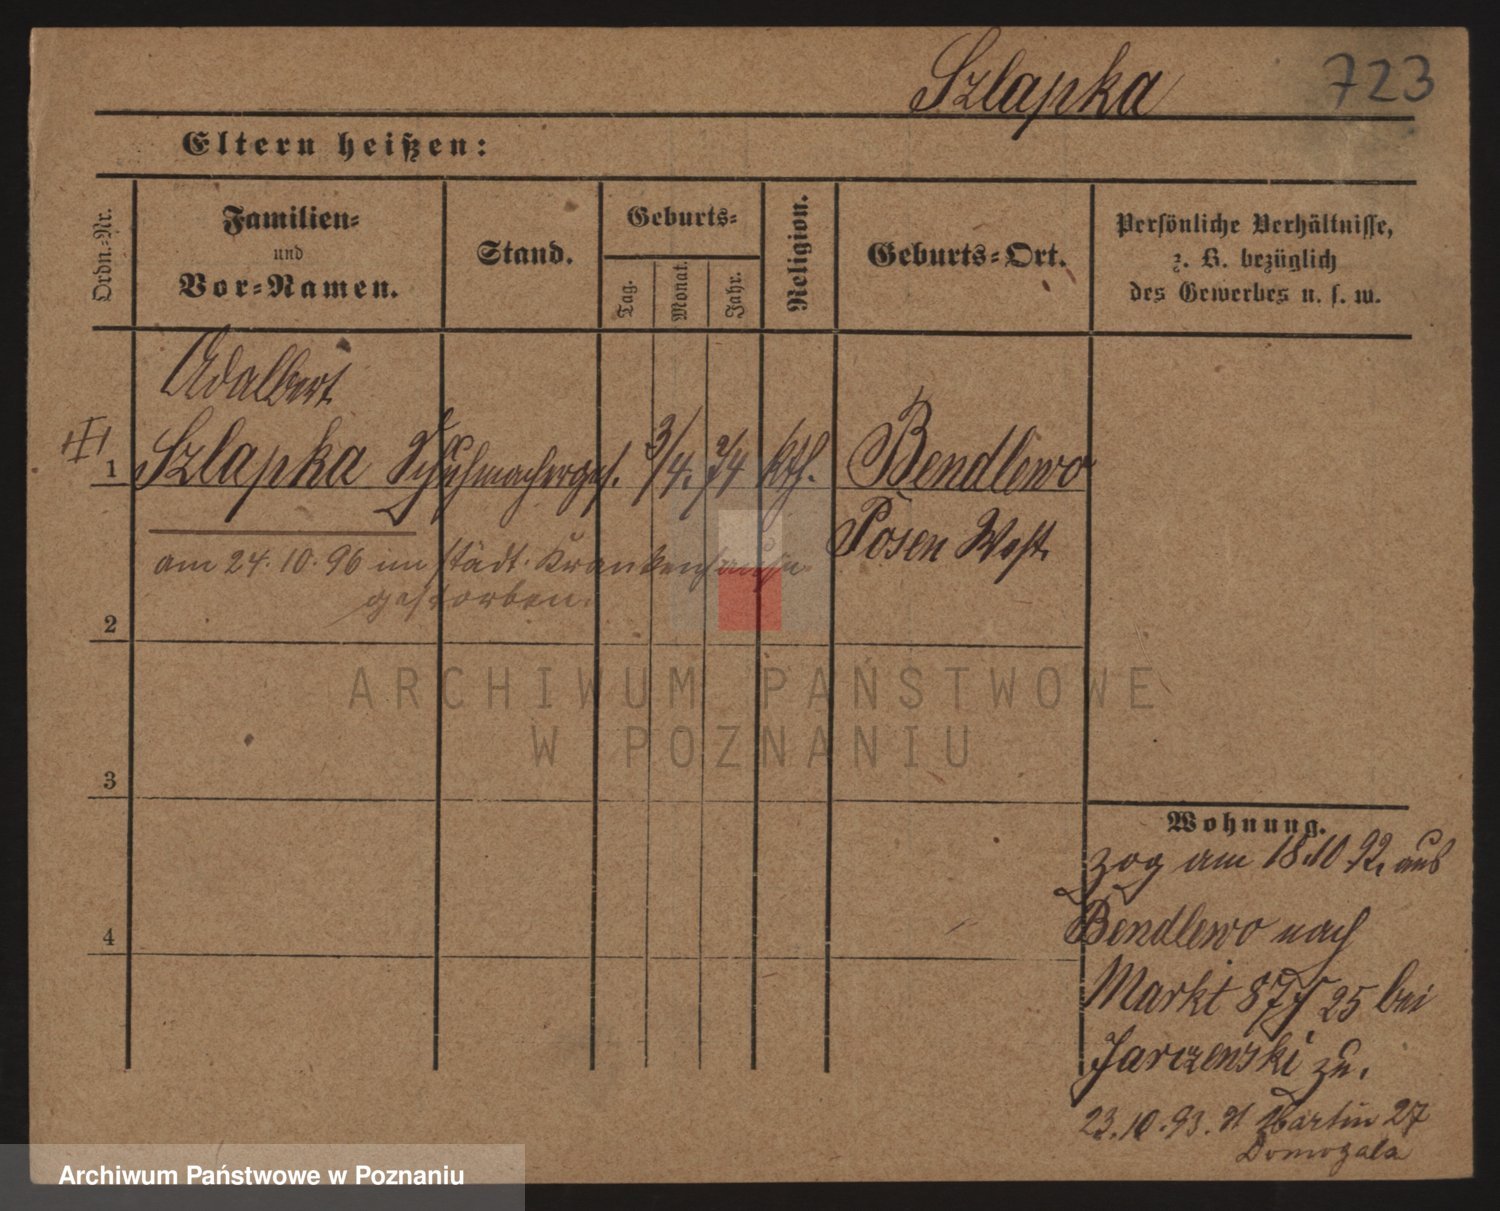 Szlapka
723
Eltern heißen:
Ordn.-Nr.
Familien-
und
Vor-Namen.
Stand.
Geburts-
Tag.
Monat.
Jahr.
Religion.
Geburts-Ort.
Persönliche Verhältnisse,
z. B. bezüglich
des Gewerbes u. s. w.
Adalbert
1 Szlapka Schuhmacherges. 3/4. 74 kth. Bendlewo
Posen West
am 24.10.96 im städt. Krankenhause
gestorben.
2
3
4
ARCHIWUM PAŃSTWOWE
W POZNANIU
Wohnung.
zog am 18.10.92. aus
Bendlewo nach
Markt 87 25 bei
Jarczenski zu.
23.10.93. St Martin 27
Domogala
Archiwum Państwowe w Poznaniu